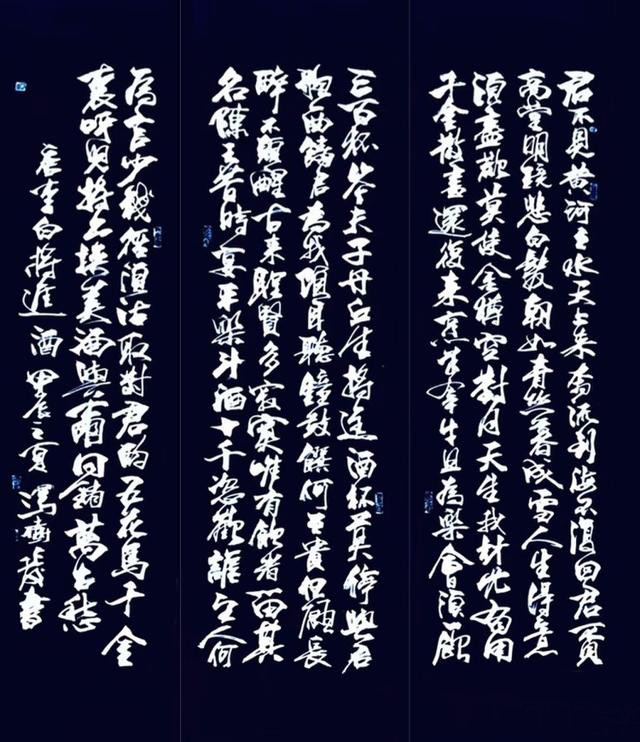 君不見黄河之水天上来奔流到海不復回君不見
高堂明鏡悲白髮朝如青丝暮成雪人生得意
須盡歡莫使金樽空對月天生我材必有用
千金散盡還復来烹羊宰牛且為樂會須一飲
三百杯岑夫子丹丘生將進酒杯莫停與君
歌一曲請君為我傾耳聽鐘鼓饌何足貴但願長
醉不願醒古来聖賢多寂寞惟有飲者留其
名陳王昔時宴平樂斗酒十千恣歡謔主人何
為言少錢徑須沽取對君酌五花馬千金
裘呼兒將出換美酒與爾同銷萬古愁
唐李白將進酒甲辰之夏馮樹書